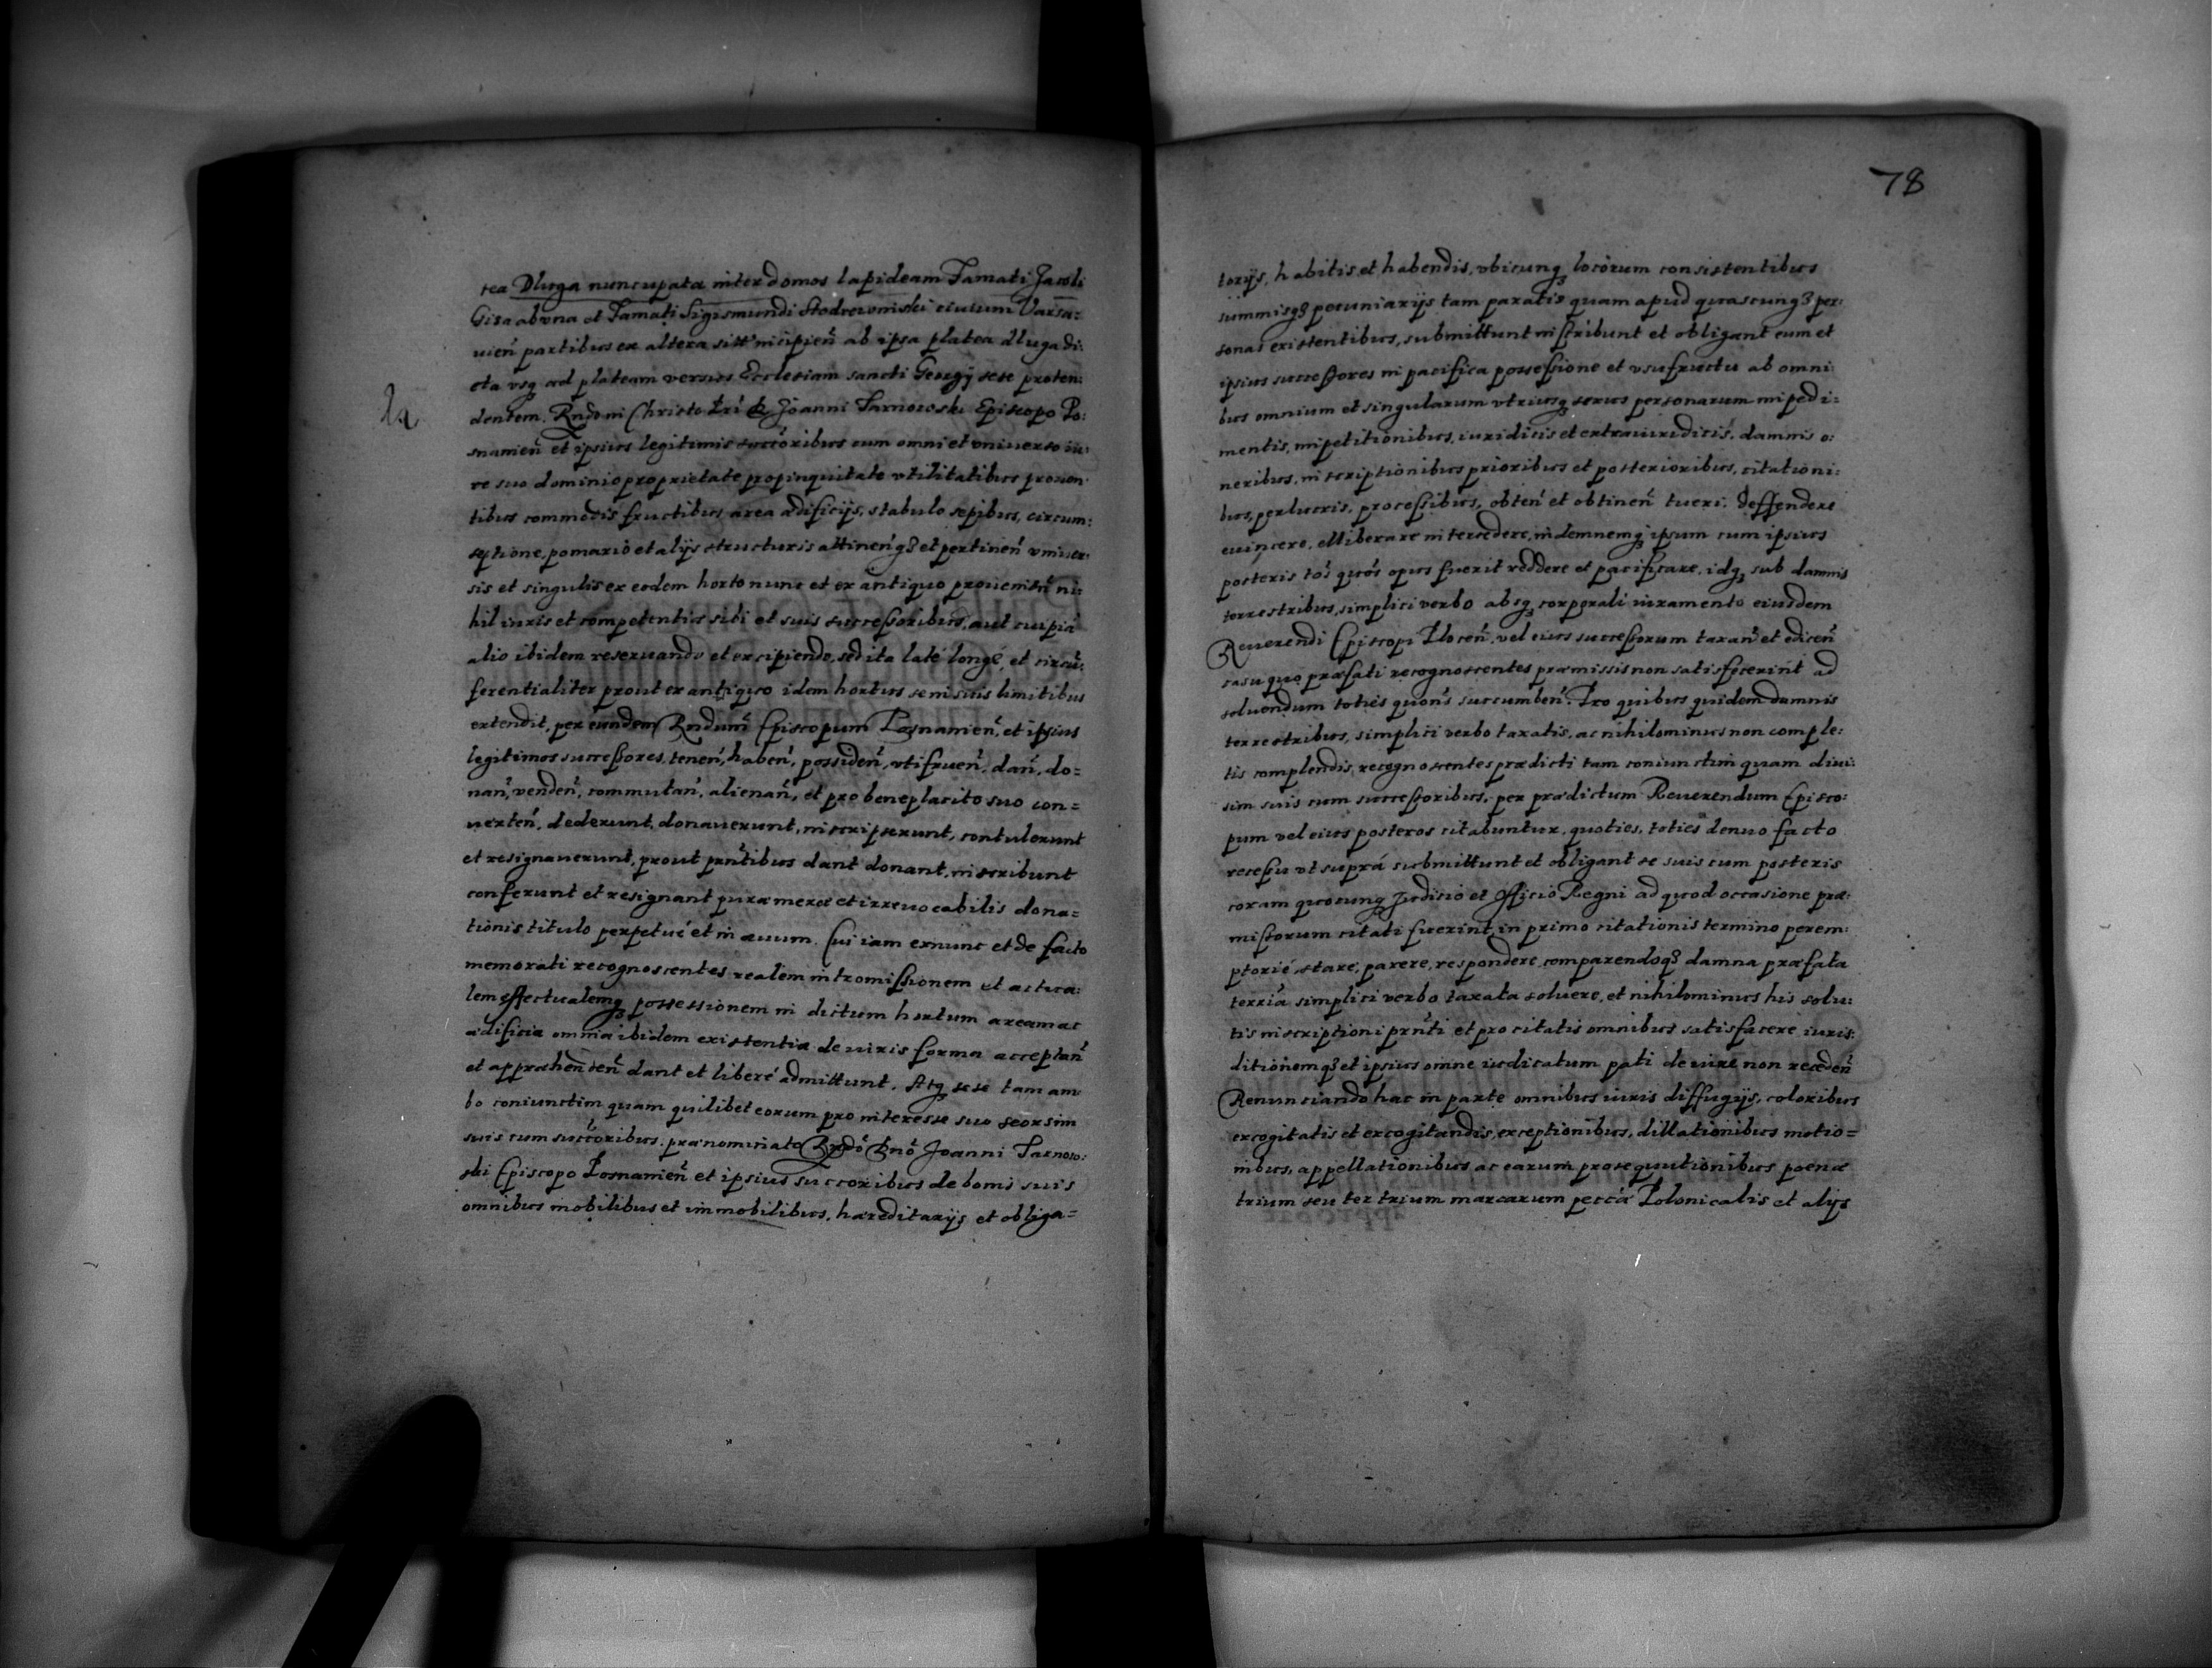 tea Dluga nuncupata inter domos lapideam Famati Jacobi
Giza ab una et Famati Sigismundi ciuium Varsa:
uien̄ partibus ex altera sitt' incipien̄ ab ipsa platea dluga di:
cta vsq₃ ad plateam versus Ecclesiam sancti Georgij sese proten:
dentem. Rndo in Christo Pri D. Joanni Tarnowski Episcopo Po:
snanien̄ et ipsius legitimis succ̄oribus cum omni et vniuerso iu:
re suo dominio proprietate propinquitate vtilitatibus prouen
tibus commodis fructibus area ædificijs, stabulo sepibus, circum:
septione, pomario et alijs structuris attinen̄q₃ et pertinen̄ vniuer:
sis et singulis ex eodem horto nunc et ex antiquo prouenien̄ ni:
hil iuris et competentiæ sibi et suis successoribus, aut cuipiā
alio ibidem reseruando et excipiendo, sed ita latè longè, et circū:
ferentialiter prout ex antiquo idem hortus se in suis limitibus
extendit, per eundem Rndum̄ Episcopum Posnanien̄, et ipsius
legitimos successores, tenen̄, haben̄, possiden̄, vtifruen̄, dan̄, do=
nan̄, venden̄, commutan̄, alienan̄, et pro beneplacito suo con=
uerten̄, dederunt, donauerunt, inscripserunt, contulerunt
et resignauerunt, prout prn̄tibus dant donant, inscribunt
conferunt et resignant puræ meræ et irreuocabilis dona=
tionis titulo perpetuè et in æuum. Cui iam exnunc et de facto
memorati recognoscentes realem intromissionem et actua:
lem effectualemq₃ possessionem in dictum hortum aream ac
ædificia omnia ibidem existentia de iuris forma acceptan̄
et apprehenden̄ dant et liberè admittunt. Atq₃ sese tam am
bo coniunctim quam quilibet eorum pro interesse suo seorsim
suis cum succ̄oribus. prænominato Rndo Dno Joanni Tarnow:
ski Episcopo Posnanien̄ et ipsius succoribus de bonis suis
omnibus mobilibus et immobilibus, hæreditarijs et obliga=
78
torijs, habitis et habendis, vbicunq₃ locorum consistentibus
summisq₃ pecuniarijs tam paratis quam apud quascunq₃ per:
sonas existentibus, submittunt inscribunt et obligant eum et
ipsius successores in pacifica possessione et vsufructu ab omni:
bus omnium et singularum vtriusq₃ sexus personarum impedi:
mentis, impetitionibus, iuridicis et extraiuridicis, damnis o:
neribus, inscriptionibus prioribus et posterioribus, citationi:
bus, perlucris, processibus, obten̄ et obtinen̄ tueri. deffendere
euincere, elliberare intercedere, indemnemq₃ ipsum cum ipsius
posteris tos quos opus fuerit reddere et pacificare, idq₃ sub damnis
terrestribus, simplici verbo absq₃ corporali iuramento eiusdem
Reuerendi Episcopi Plocen̄, vel eius successorum taxan̄ et edicen̄
casu quo præfati recognoscentes præmissis non satisfecerint ad
soluendum toties quons̄ succumben̄. Pro quibus quidem damnis
terrestribus, simplici verbo taxatis, ac nihilominus non comple:
tis complendis, recognoscentes prædicti tam coniunctim quam diui:
sim suis cum successoribus, per prædictum Reuerendum Episco:
pum vel eius posteros citabuntur, quoties, toties denuo facto
recessu vt suprà submittunt et obligant se suis cum posteris
coram quocunq₃ Judicio et officio Regni ad quod occasione præ:
missorum citati fuerint, in primo citationis termino perem:
ptoriè stare, parere, respondere comparendoq₃ damna præfata
terria simplici verbo taxata soluere, et nihilominus his solu:
tis inscriptioni prn̄ti et pro citatis omnibus satisfacere iuris:
ditionemq₃ et ipsius omne iudicatum pati de iure non receden̄
Renunciando hac in parte omnibus iuris diffugijs, coloribus
excogitatis et excogitandis, exceptionibus, dillationibus motio=
nibus, appellationibus ac earum prosequutionibus poenæ
trium seu ter trium marcarum peccā Polonicalis et alijs